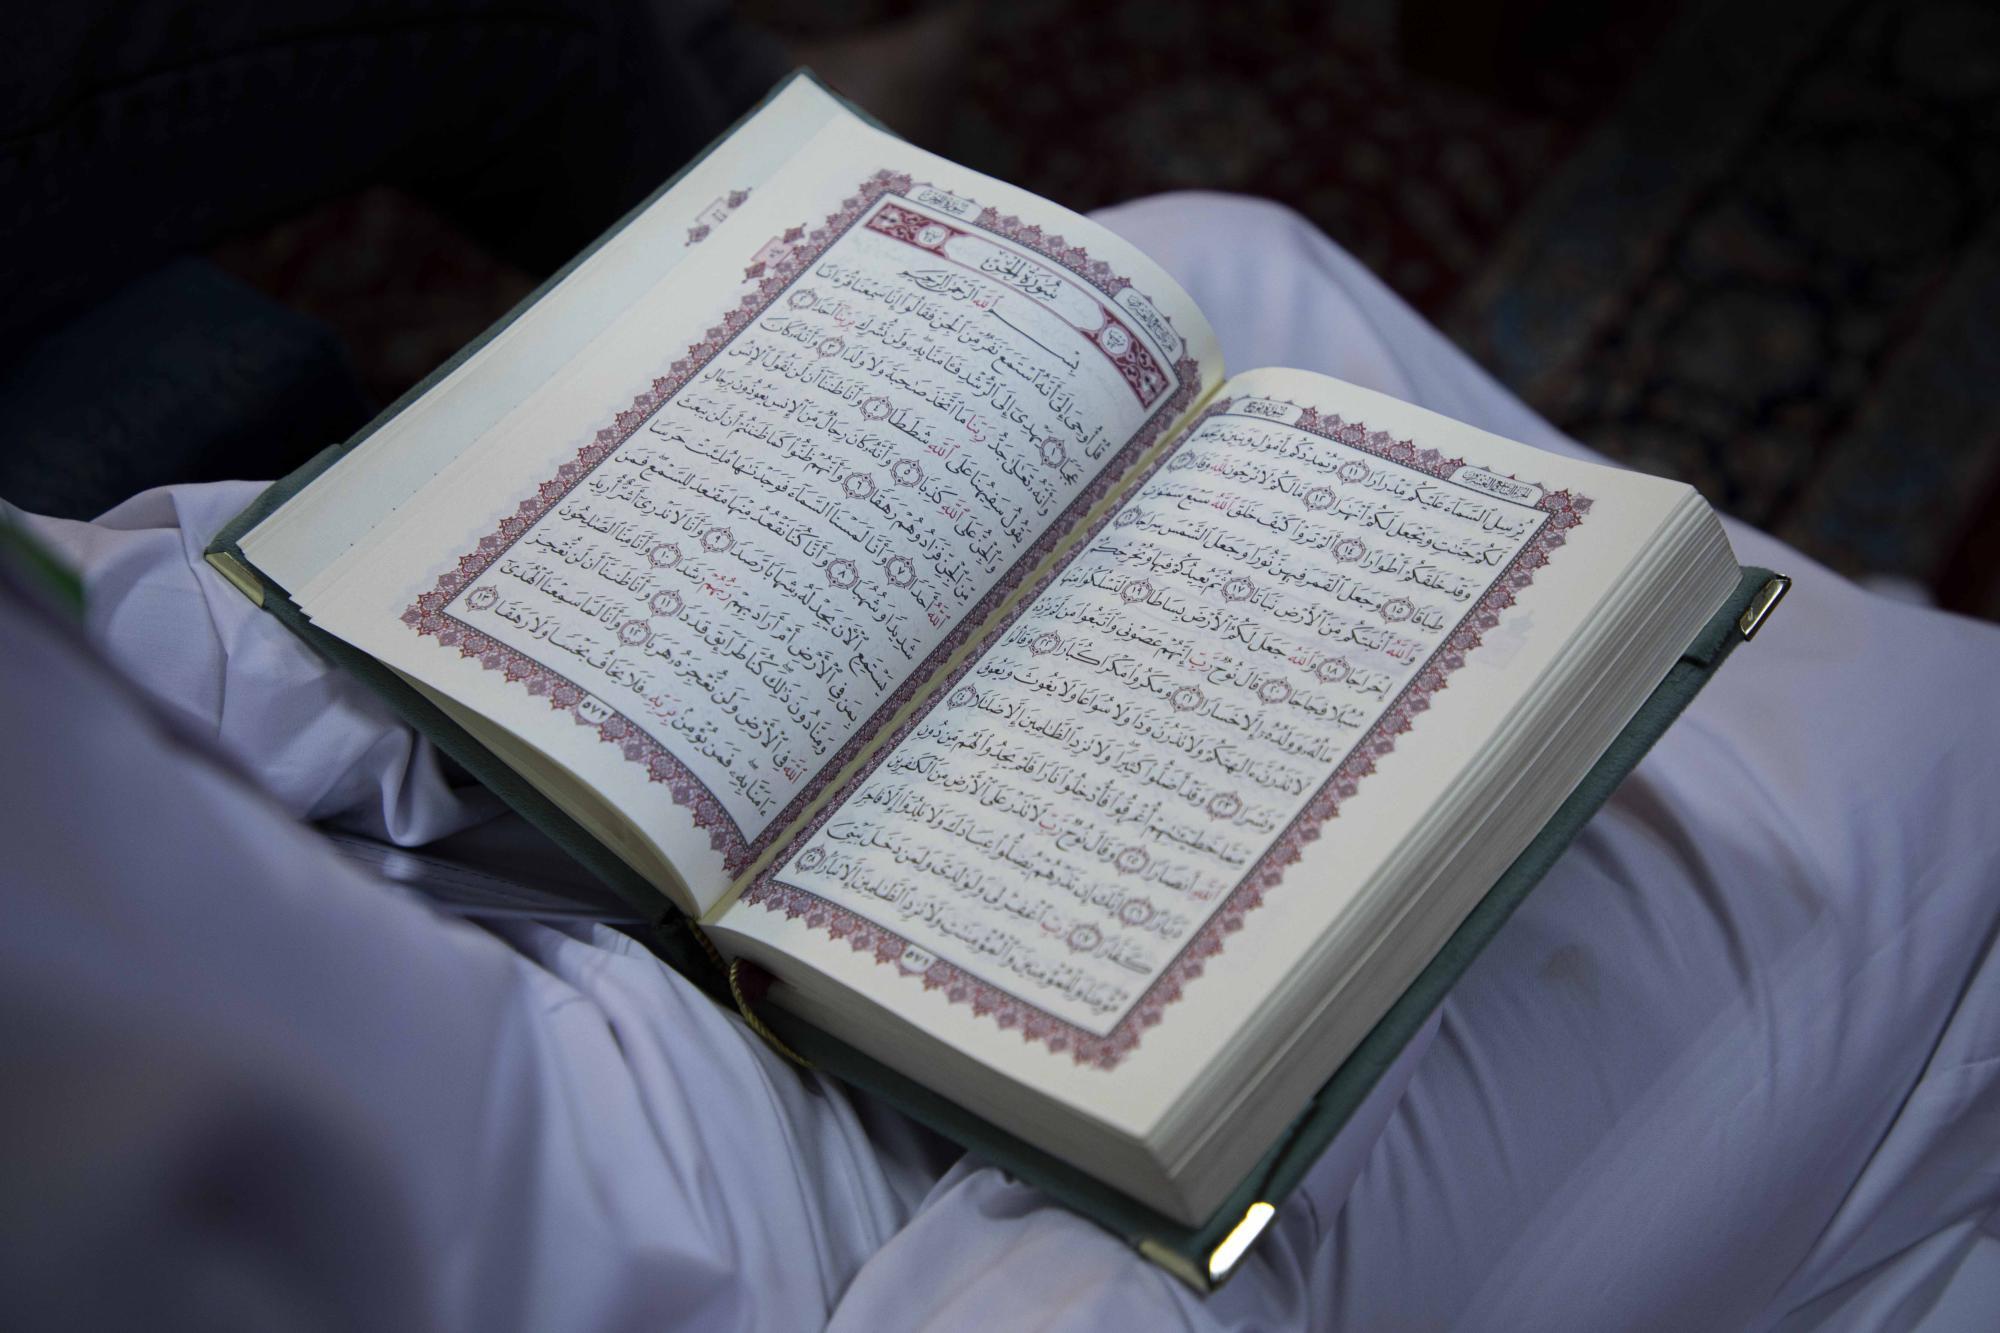 سورة نوح
الجزء التاسع والعشرون
يُرْسِلِ ٱلسَّمَآءَ عَلَيْكُم مِّدْرَارًا ١١ وَيُمْدِدْكُم بِأَمْوَٰلٍ وَبَنِينَ وَيَجْعَل
لَّكُمْ جَنَّٰتٍ وَيَجْعَل لَّكُمْ أَنْهَٰرًا ١٢ مَّا لَكُمْ لَا تَرْجُونَ لِلَّهِ وَقَارًا ١٣
وَقَدْ خَلَقَكُمْ أَطْوَارًا ١٤ أَلَمْ تَرَوْا۟ كَيْفَ خَلَقَ ٱللَّهُ سَبْعَ سَمَٰوَٰتٍ
طِبَاقًا ١٥ وَجَعَلَ ٱلْقَمَرَ فِيهِنَّ نُورًا وَجَعَلَ ٱلشَّمْسَ سِرَاجًا ١٦
وَٱللَّهُ أَنۢبَتَكُم مِّنَ ٱلْأَرْضِ نَبَاتًا ١٧ ثُمَّ يُعِيدُكُمْ فِيهَا وَيُخْرِجُكُمْ
إِخْرَاجًا ١٨ وَٱللَّهُ جَعَلَ لَكُمُ ٱلْأَرْضَ بِسَاطًا ١٩ لِّتَسْلُكُوا۟ مِنْهَا
سُبُلًا فِجَاجًا ٢٠ قَالَ نُوحٌ رَّبِّ إِنَّهُمْ عَصَوْنِى وَٱتَّبَعُوا۟ مَن لَّمْ يَزِدْهُ
مَالُهُۥ وَوَلَدُهُۥٓ إِلَّا خَسَارًا ٢١ وَمَكَرُوا۟ مَكْرًا كُبَّارًا ٢٢ وَقَالُوا۟
لَا تَذَرُنَّ ءَالِهَتَكُمْ وَلَا تَذَرُنَّ وَدًّا وَلَا سُوَاعًا وَلَا يَغُوثَ وَيَعُوقَ
وَنَسْرًا ٢٣ وَقَدْ أَضَلُّوا۟ كَثِيرًا ۖ وَلَا تَزِدِ ٱلظَّٰلِمِينَ إِلَّا ضَلَٰلًا ٢٤
مِّمَّا خَطِيٓـَٰٔتِهِمْ أُغْرِقُوا۟ فَأُدْخِلُوا۟ نَارًا فَلَمْ يَجِدُوا۟ لَهُم مِّن دُونِ
ٱللَّهِ أَنصَارًا ٢٥ وَقَالَ نُوحٌ رَّبِّ لَا تَذَرْ عَلَى ٱلْأَرْضِ مِنَ ٱلْكَٰفِرِينَ
دَيَّارًا ٢٦ إِنَّكَ إِن تَذَرْهُمْ يُضِلُّوا۟ عِبَادَكَ وَلَا يَلِدُوٓا۟ إِلَّا فَاجِرًا
كَفَّارًا ٢٧ رَّبِّ ٱغْفِرْ لِى وَلِوَٰلِدَىَّ وَلِمَن دَخَلَ بَيْتِىَ
مُؤْمِنًا وَلِلْمُؤْمِنِينَ وَٱلْمُؤْمِنَٰتِ وَلَا تَزِدِ ٱلظَّٰلِمِينَ إِلَّا تَبَارًۢا ٢٨
٥٧١
الجزء التاسع والعشرون
سورة الجن
سُورَةُ الجِنِّ
بِسْمِ ٱللَّهِ ٱلرَّحْمَٰنِ ٱلرَّحِيمِ
قُلْ أُوحِىَ إِلَىَّ أَنَّهُ ٱسْتَمَعَ نَفَرٌ مِّنَ ٱلْجِنِّ فَقَالُوٓا۟ إِنَّا سَمِعْنَا قُرْءَانًا
عَجَبًا ١ يَهْدِىٓ إِلَى ٱلرُّشْدِ فَـَٔامَنَّا بِهِۦ ۖ وَلَن نُّشْرِكَ بِرَبِّنَآ أَحَدًا ٢
وَأَنَّهُۥ تَعَٰلَىٰ جَدُّ رَبِّنَا مَا ٱتَّخَذَ صَٰحِبَةً وَلَا وَلَدًا ٣ وَأَنَّهُۥ كَانَ
يَقُولُ سَفِيهُنَا عَلَى ٱللَّهِ شَطَطًا ٤ وَأَنَّا ظَنَنَّآ أَن لَّن تَقُولَ ٱلْإِنسُ
وَٱلْجِنُّ عَلَى ٱللَّهِ كَذِبًا ٥ وَأَنَّهُۥ كَانَ رِجَالٌ مِّنَ ٱلْإِنسِ يَعُوذُونَ بِرِجَالٍ
مِّنَ ٱلْجِنِّ فَزَادُوهُمْ رَهَقًا ٦ وَأَنَّهُمْ ظَنُّوا۟ كَمَا ظَنَنتُمْ أَن لَّن يَبْعَثَ
ٱللَّهُ أَحَدًا ٧ وَأَنَّا لَمَسْنَا ٱلسَّمَآءَ فَوَجَدْنَٰهَا مُلِئَتْ حَرَسًا
شَدِيدًا وَشُهُبًا ٨ وَأَنَّا كُنَّا نَقْعُدُ مِنْهَا مَقَٰعِدَ لِلسَّمْعِ ۖ فَمَن
يَسْتَمِعِ ٱلْـَٔانَ يَجِدْ لَهُۥ شِهَابًا رَّصَدًا ٩ وَأَنَّا لَا نَدْرِىٓ أَشَرٌّ أُرِيدَ
بِمَن فِى ٱلْأَرْضِ أَمْ أَرَادَ بِهِمْ رَبُّهُمْ رَشَدًا ١٠ وَأَنَّا مِنَّا ٱلصَّٰلِحُونَ
وَمِنَّا دُونَ ذَٰلِكَ ۖ كُنَّا طَرَآئِقَ قِدَدًا ١١ وَأَنَّا ظَنَنَّآ أَن لَّن نُّعْجِزَ
ٱللَّهَ فِى ٱلْأَرْضِ وَلَن نُّعْجِزَهُۥ هَرَبًا ١٢ وَأَنَّا لَمَّا سَمِعْنَا ٱلْهُدَىٰٓ
ءَامَنَّا بِهِۦ ۖ فَمَن يُؤْمِنۢ بِرَبِّهِۦ فَلَا يَخَافُ بَخْسًا وَلَا رَهَقًا ١٣
٥٧٢